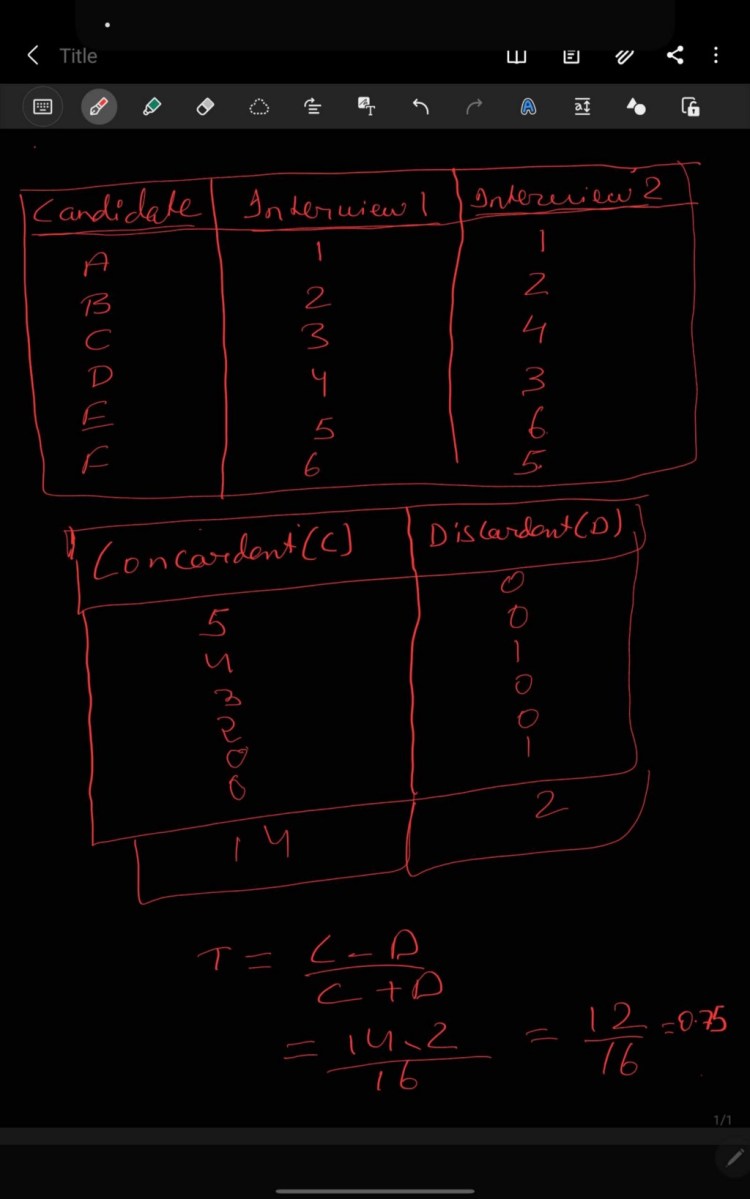 Title
Candidate Interview 1 Interview 2
A 1 1
B 2 2
C 3 4
D 4 3
E 5 6
F 6 5
Concardent(C) Discardent(D)
0
5 0
4 1
3 0
2 0
0 1
0
14 2
T = C - D
C + D
= 14-2 = 12 =0.75
16 16
1/1